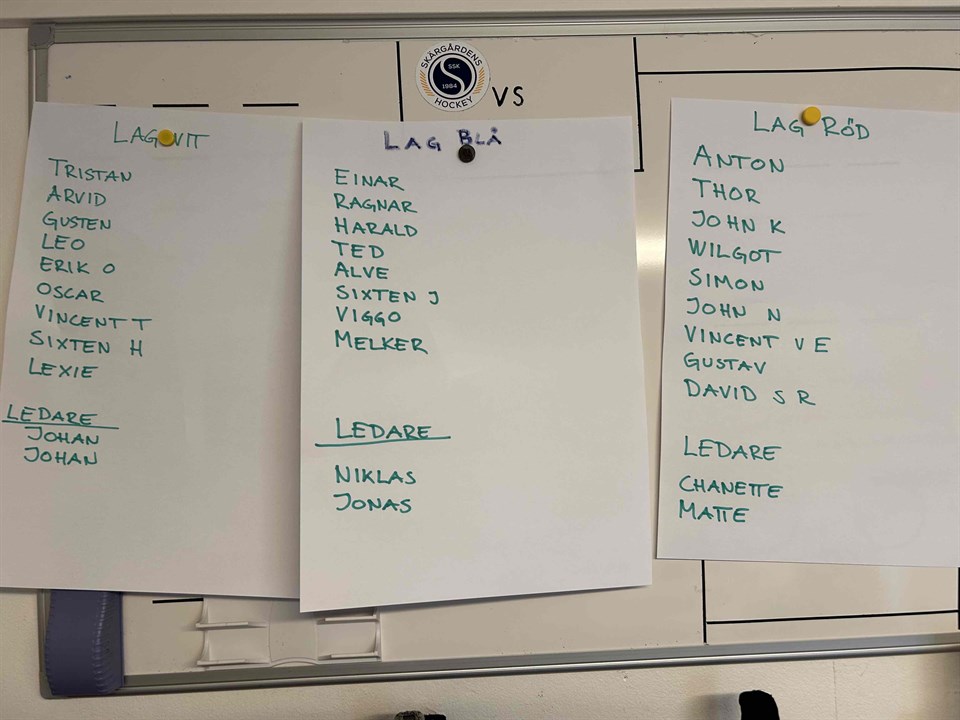 SKÄRGÅRDENS
SSK
1984
HOCKEY
VS
LAG VIT
TRISTAN
ARVID
GUSTEN
LEO
ERIK O
OSCAR
VINCENT T
SIXTEN H
LEXIE
LEDARE
JOHAN
JOHAN
LAG BLÅ
EINAR
RAGNAR
HARALD
TED
ALVE
SIXTEN J
VIGGO
MELKER
LEDARE
NIKLAS
JONAS
LAG RÖD
ANTON
THOR
JOHN K
WILGOT
SIMON
JOHN N
VINCENT V E
GUSTAV
DAVID S R
LEDARE
CHANETTE
MATTE